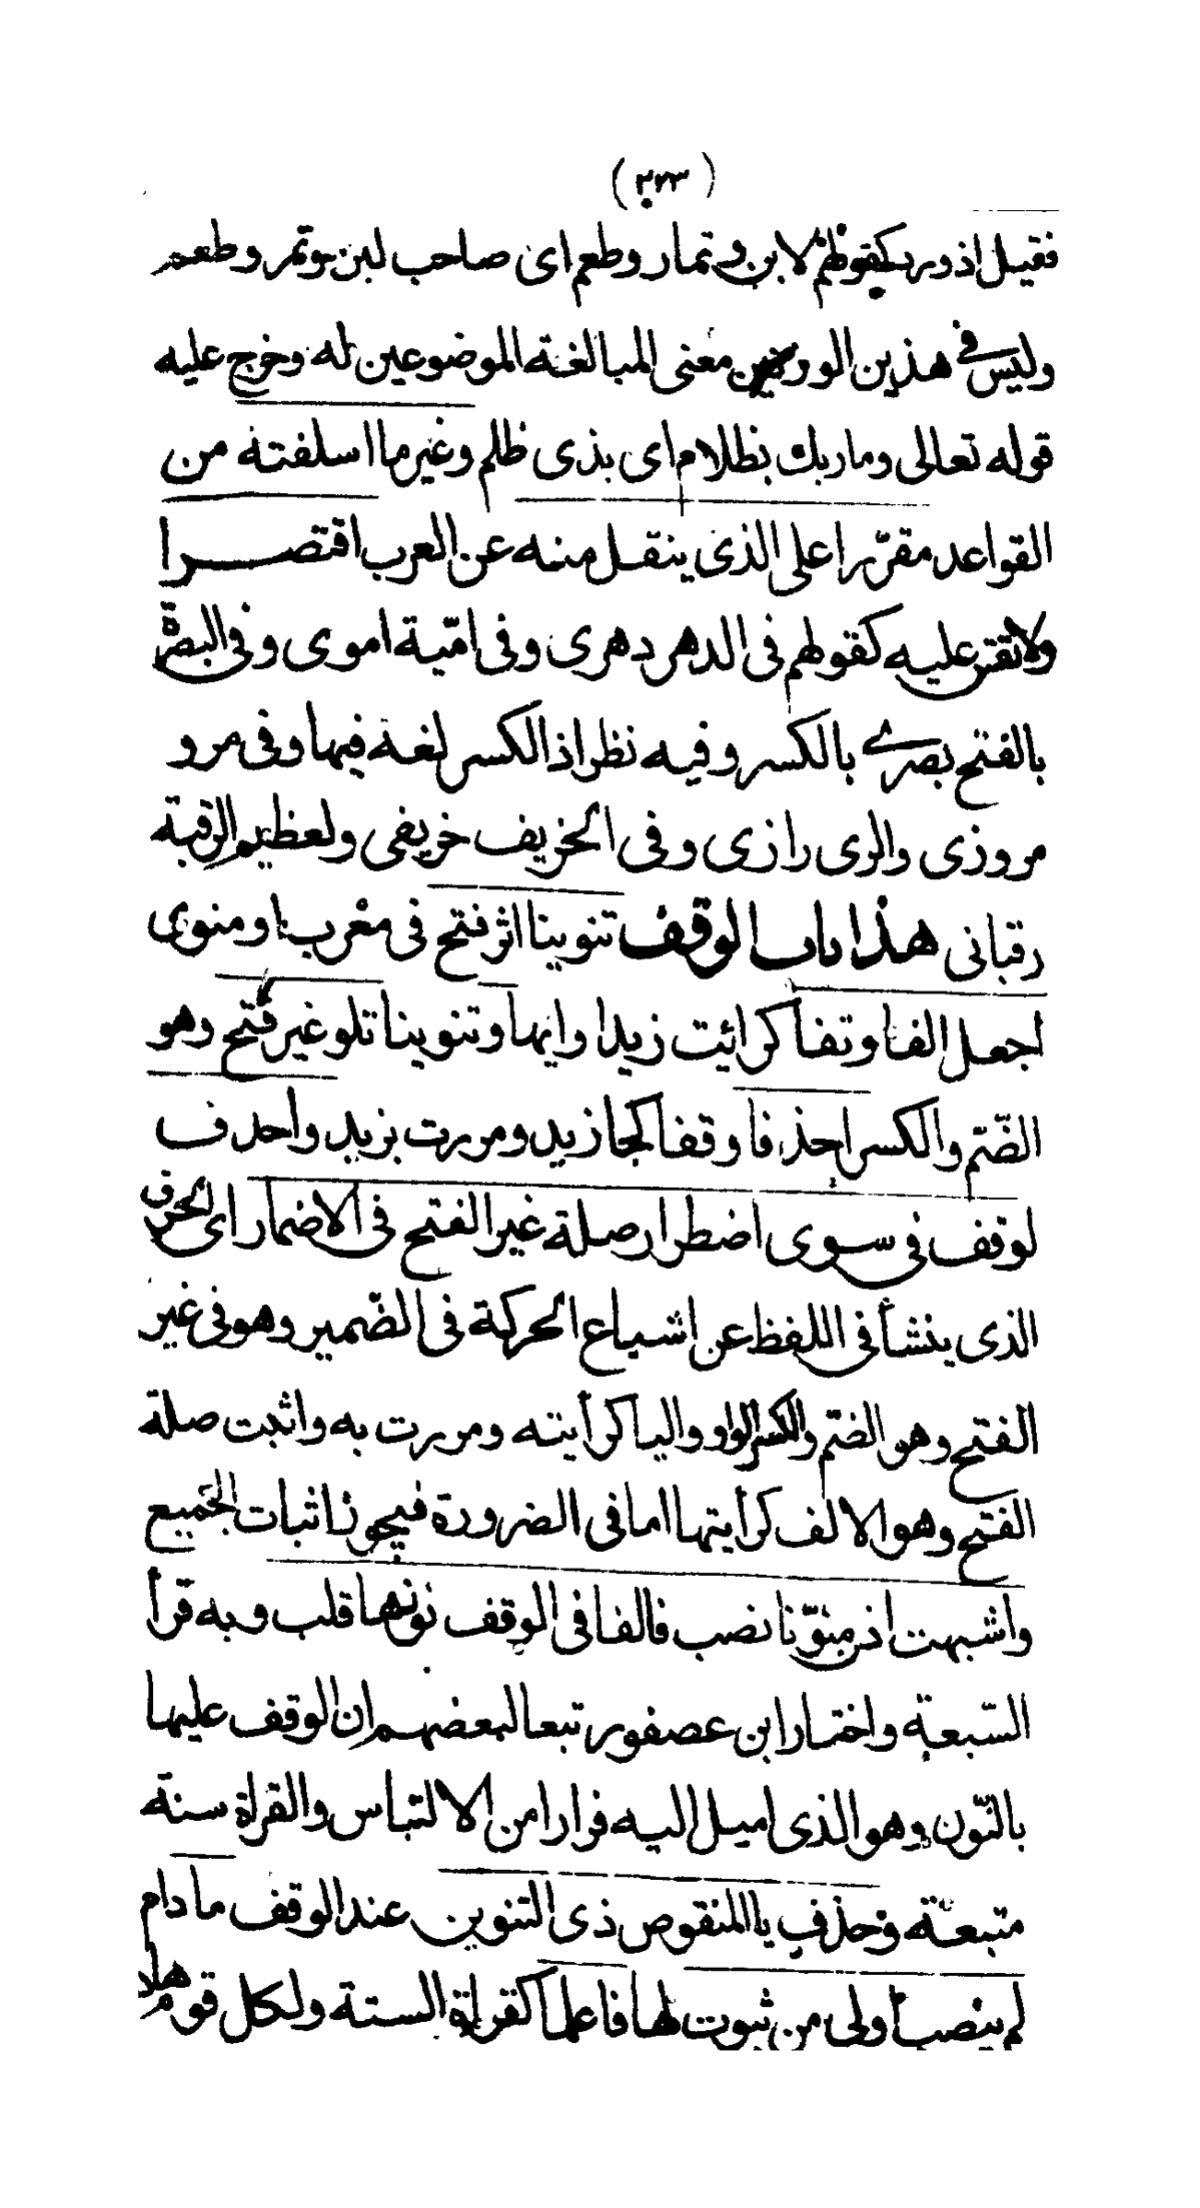 (٣٢٣)
فقيل اذ ورد كقولهم لابن وتمار وطعم اى صاحب لبن وتمر وطعم
وليس فى هذين الوزنين معنى المبالغة الموضوعين له وخرج عليه
قوله تعالى وما ربك بظلام اى بذى ظلم وغير ما اسلفته من
القواعد مقرّرا على الذى ينقل منه عن العرب اقتصرا
ولا تقس عليه كقولهم فى الدهر دهرى وفى اميّة اموى وفى البصرة
بالفتح بصرے بالكسر وفيه نظر اذ الكسر لغة فيها وفى مرو
مروزى والرى رازى وفى الخريف خريفى ولعظيم الرقبة
رقبانى هذا باب الوقف تنوينا اثر فتح فى معْرب او منوى
اجعل الفا وتفا كرائيت زيدا وايها وتنوينا تلو غير فتح وهو
الضّم والكسر احذفا وقفا كجا زيد ومررت بزيد واحذف
لوقف فى سوى اضطرار صلة غير الفتح فى الاضمار اى الحرف
الذى ينشأ فى اللفظ عن اشباع الحركة فى الضّمير وهو فى غير
الفتح وهو الضّم والكسر الواو واليا كرأيته ومررت به واثبت صلة
الفتح وهو الالف كرأيتها اما فى الضرورة فيجوز اثبات الجميع
واشبهت اذن منوّنا نصب فالفا فى الوقف نونها قلب وبه قرأ
السّبعة واختار ابن عصفور تبعا لبعضهم ان الوقف عليها
بالنّون وهو الذى اميل اليه فرارا من الالتباس والقراة سنة
متبعة وحذف يا المنقوص ذى التنوين عند الوقف ما دام
لم ينصب أولى من ثبوت لها فاعلما كقراة الستة ولكل قوم هلا